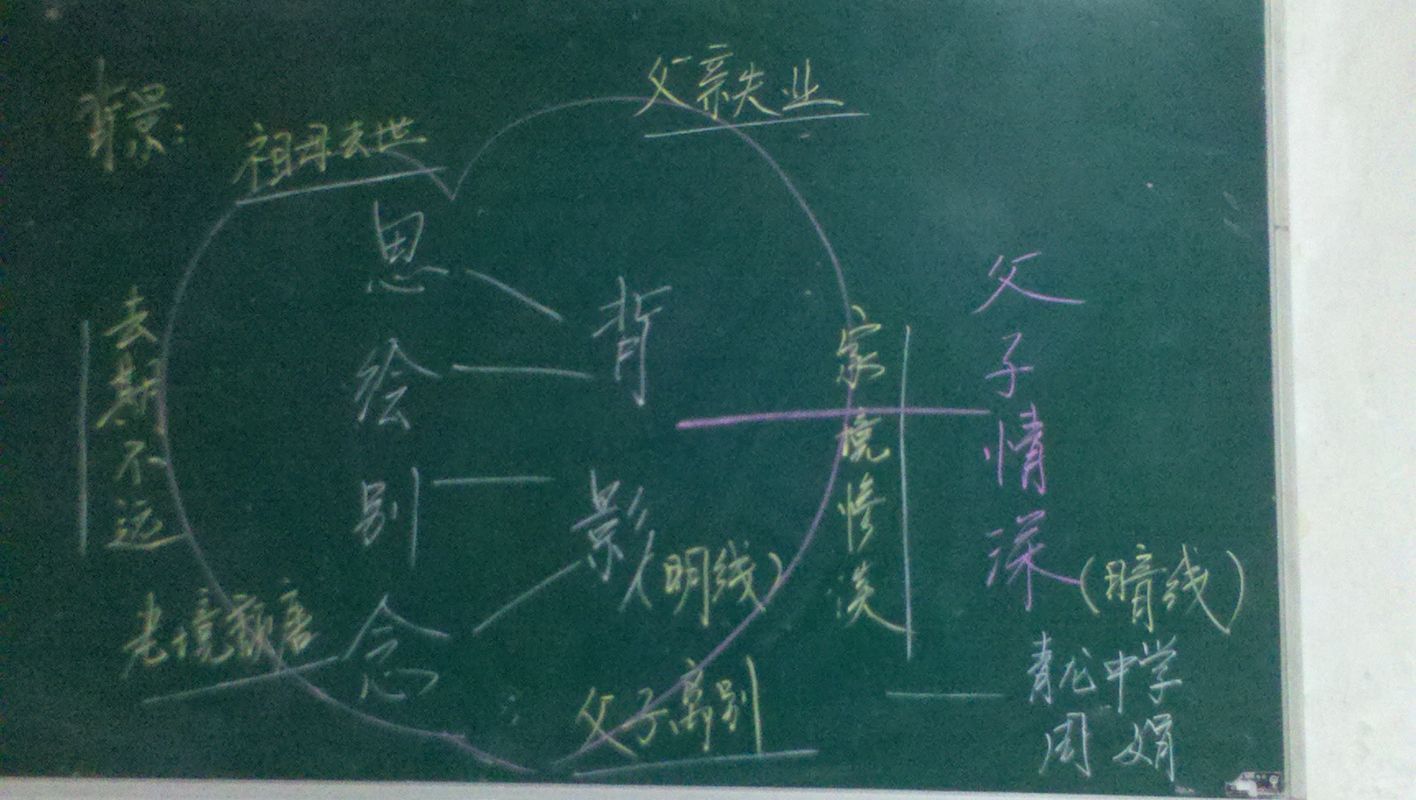 背景：
祖母去世
父亲失业
思
绘
别
念
背影（明线）
去期不远
老境颓唐
父子离别
家境惨淡
父子情深（暗线）
青龙中学
周娟